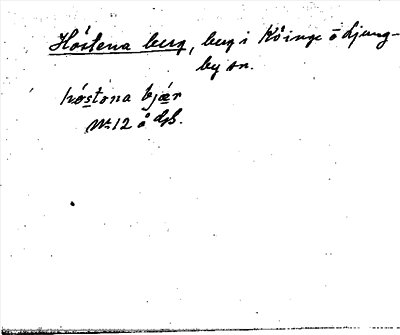 Hóstena berg, berg i Köinge o Ljung-
by sn.
hóstona bjær
Nr 12 å